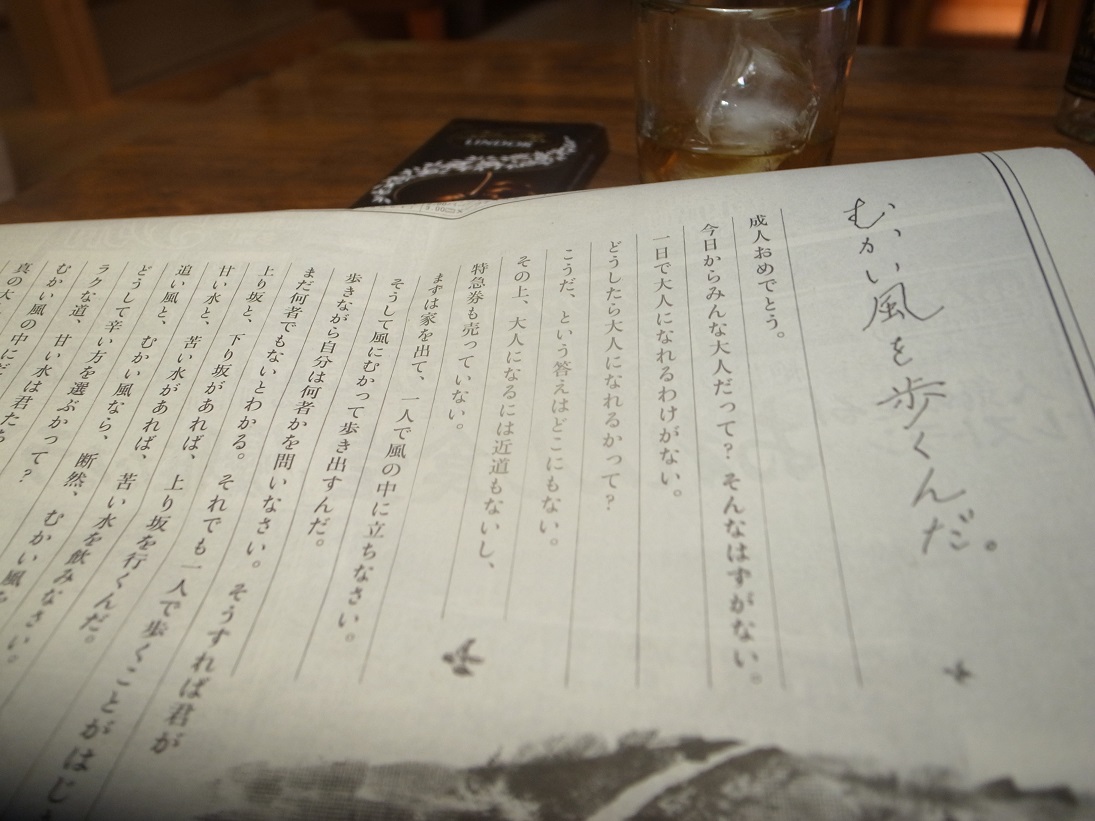 むかい風を歩くんだ。
成人おめでとう。
今日からみんな大人だって？そんなはずがない。
一日で大人になれるわけがない。
どうしたら大人になれるかって？
こうだ、という答えはどこにもない。
その上、大人になるには近道もないし、
特急券も売っていない。
まずは家を出て、一人で風の中に立ちなさい。
そうして風にむかって歩き出すんだ。
歩きながら自分は何者かを問いなさい。そうすれば君が
まだ何者でもないとわかる。それでも一人で歩くことがはじ
上り坂と、下り坂があれば、上り坂を行くんだ。
甘い水と、苦い水があれば、苦い水を飲みなさい。
追い風と、むかい風なら、断然、むかい風を
どうして辛い方を選ぶかって？
ラクな道、甘い水は君たち
むかい風の中にだ
真の大
LINDOR